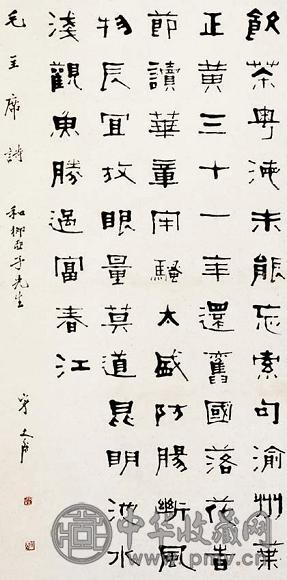 飲茶粤海未能忘索句渝州葉
正黄三十一年還舊國落花旹
節讀華章牢騷太盛防腸斷風
物長宜放眼量莫道昆明池水
淺觀魚勝過富春江
毛主席詩 和柳亞子先生
中华收藏网